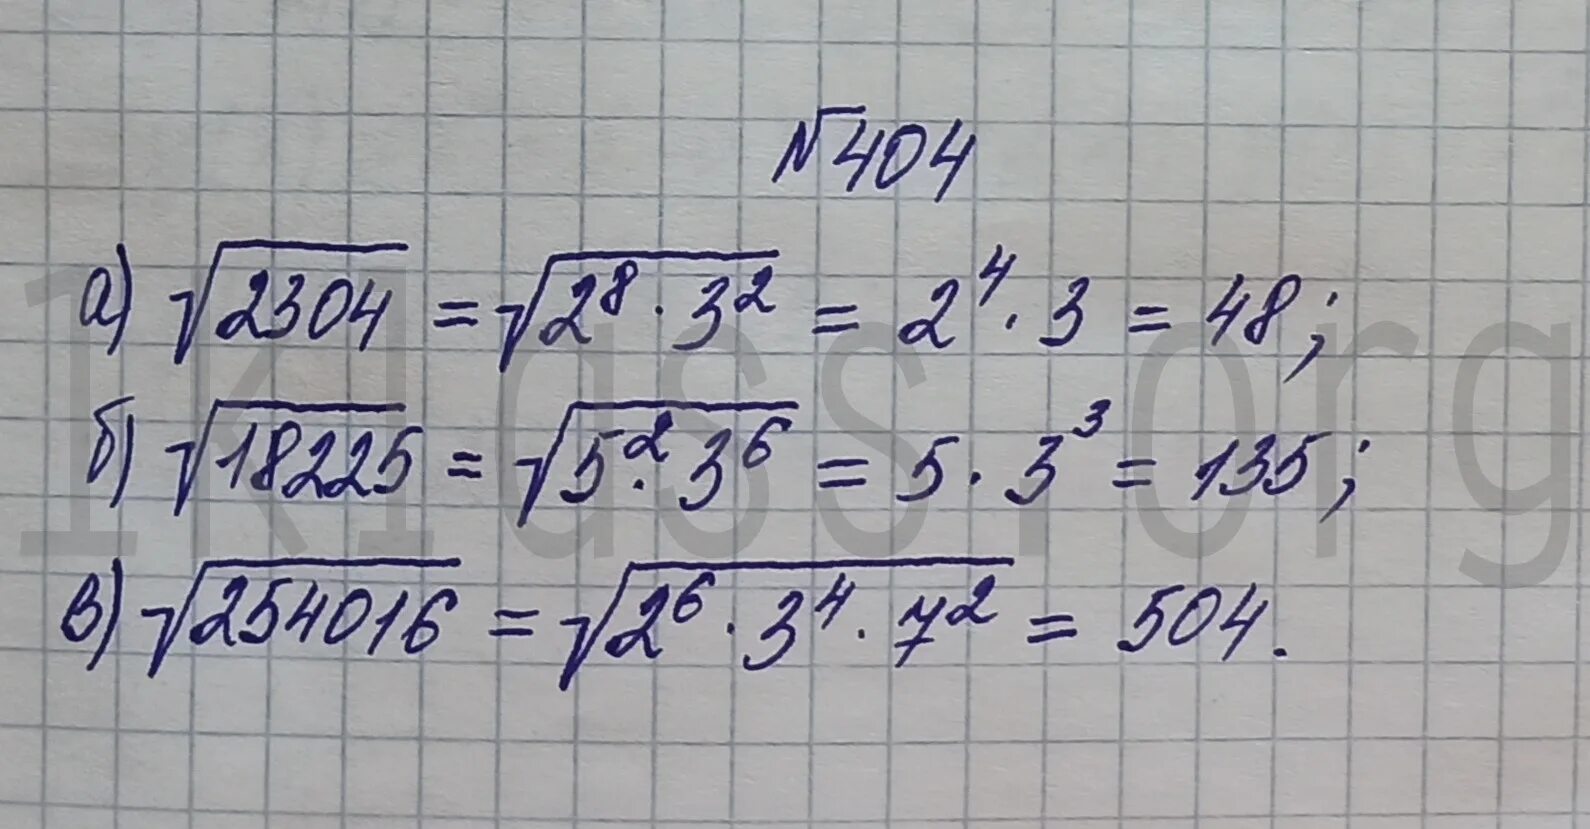 №404
а) √2304 = √2⁸ · 3² = 2⁴ · 3 = 48;
б) √18225 = √5² · 3⁶ = 5 · 3³ = 135;
в) √254016 = √2⁶ · 3⁴ · 7² = 504.
1klass.org